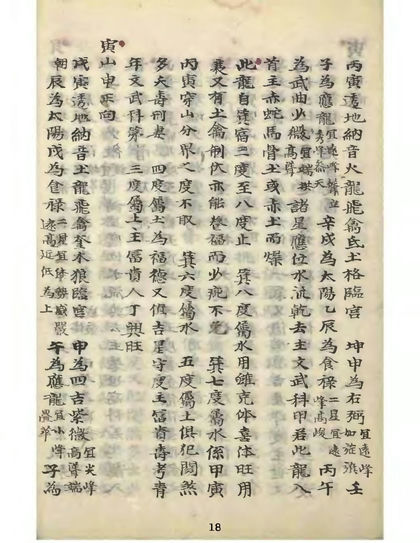 丙寅透地納音火龍飛禽氐土格臨宮　坤申為右弼宜遠峰加從漲壬
子為應龍宜尖峰聳立秀峰參天辛戌為太陽乙辰為食祿二星宜遠峰高峻丙午
為武曲必微宜端拱高尊諸星應位水流乾去主文武科甲若此龍入
首主赤蛇馬骨土或赤土而燥
此龍自箕宿三度至八度止　箕八度屬水用雖克体喜体旺用
衰又有土禽制伏亦能發福而必疵不免　箕七度屬水係甲寅
丙寅穿山分界之度不取　箕六度屬水　五度屬土俱犯關煞
多夭壽刑妻　四度屬土為福德又俱吉星守度主富貴壽考青
年文武科第　三度屬上主富貴人丁興旺
寅山申向
戊寅透地納音土龍飛禽奎木狼臨宮　申為四吉紫微宜尖峰高尊端
朝辰為太陽戌為食祿二星宜停勢巖嚴遠高近低為上午為應龍宜小峰疊翠子為
18